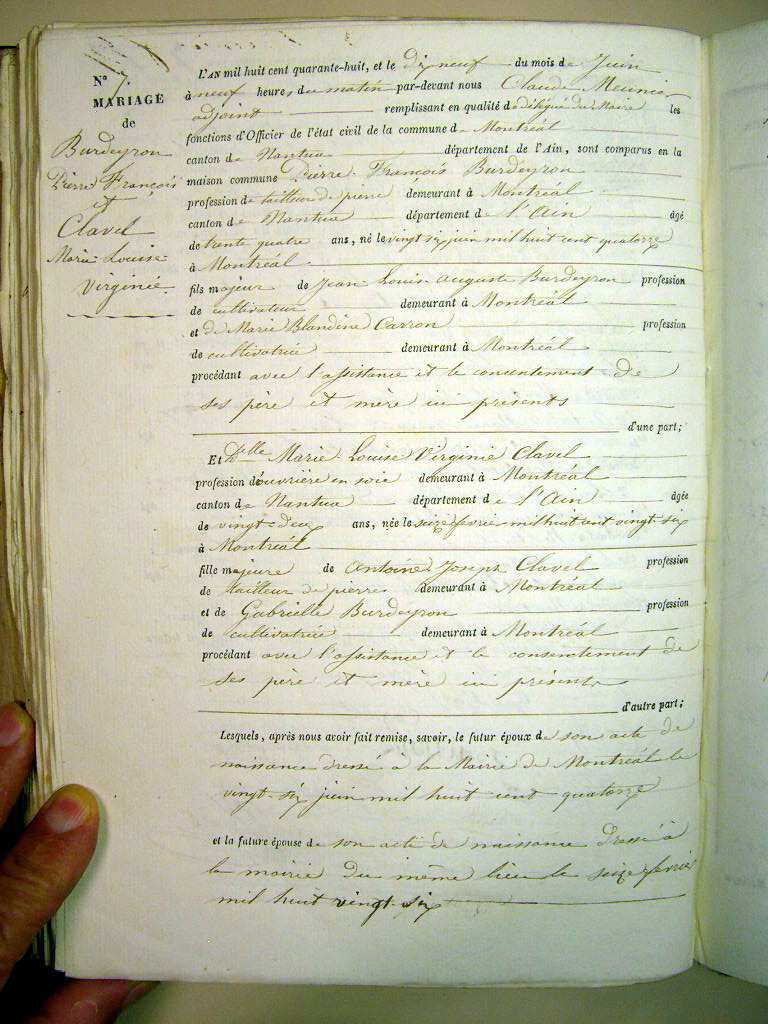 N° 7.
MARIAGE
de
Burdeyron
Pierre François
et
Clavel
Marie Louise
Virginie
L'AN mil huit cent quarante-huit, et le dix neuf du mois de Juin
à neuf heures du matin par-devant nous Claude Meunier
adjoint remplissant en qualité de délégué du Maire les
fonctions d'Officier de l'état civil de la commune de Montréal
canton de Nantua département de l'Ain, sont comparus en la
maison commune Pierre François Burdeyron
profession de tailleur de pierre demeurant à Montréal
canton de Nantua département de l'Ain âgé
de trente quatre ans, né le vingt six juin mil huit cent quatorze
à Montréal
fils majeur de Jean Louis Auguste Burdeyron profession
de cultivateur demeurant à Montréal
et de Marie Blandine Carron profession
de cultivatrice demeurant à Montréal
procédant avec l'assistance et le consentement de
ses père et mère ici présents
d'une part;
Et Dlle Marie Louise Virginie Clavel
profession d'ouvrière en soie demeurant à Montréal
canton de Nantua département de l'Ain âgée
de vingt-deux ans, née le seize février mil huit cent vingt-six
à Montréal
fille majeure de Antoine Joseph Clavel profession
de tailleur de pierres demeurant à Montréal
et de Gabrielle Burdeyron profession
de cultivatrice demeurant à Montréal
procédant avec l'assistance et le consentement de
ses père et mère ici présents
d'autre part;
Lesquels, après nous avoir fait remise, savoir, le futur époux de son acte de
naissance dressé à la Mairie de Montréal le
vingt-six juin mil huit cent quatorze
et la future épouse de son acte de naissance dressé à
la mairie du même lieu le seize février
mil huit vingt-six